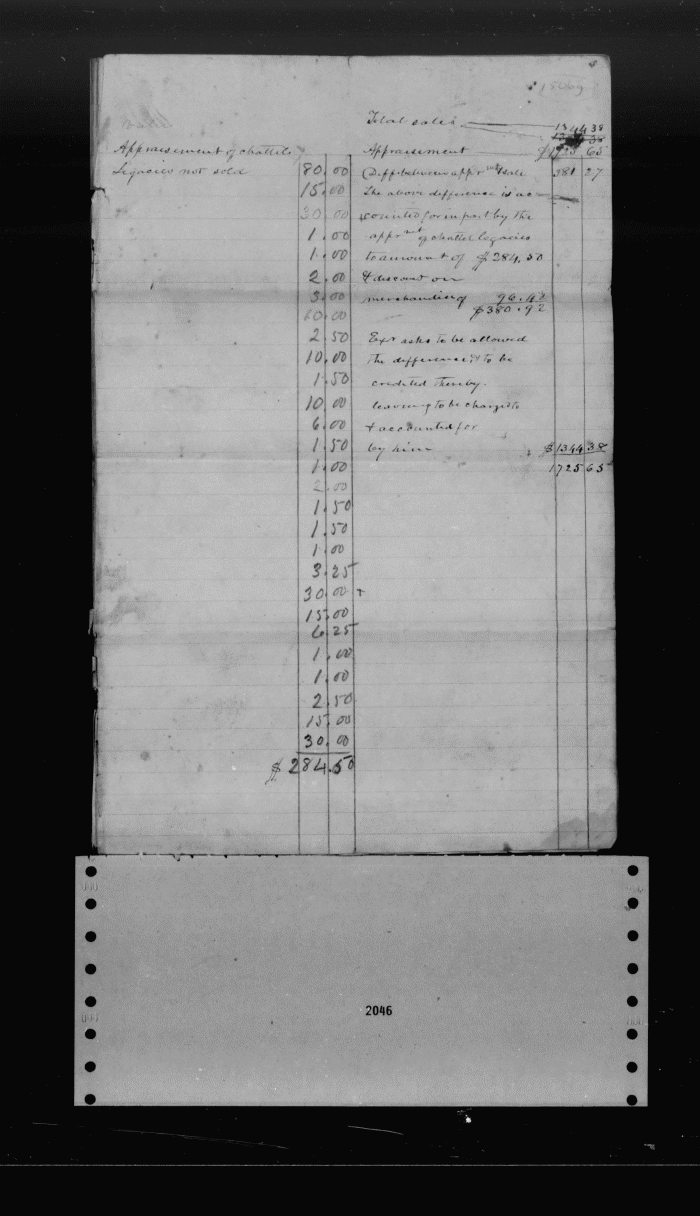 Appraisement of chattels
Legacies not sold
80.00
15.00
30.00
1.00
1.00
2.00
3.00
10.00
2.50
10.00
1.50
10.00
6.00
1.50
1.00
2.00
1.50
1.50
1.00
3.25
30.00 +
15.00
6.25
1.00
1.00
2.50
15.00
30.00
$284.50
Total sales 1344 38
Appraisement $1725 65
Diff between appr mt & sale 381 27
The above difference is ac-
counted for in part by the
appr mt of chattel legacies
to amount of $284.50
& discount on
merchandise of 96.42
$380.92
Exr asks to be allowed
the difference & to be
credited thereby
leaving to be charged to
& accounted for
by him $1344 38
1725 65
2046